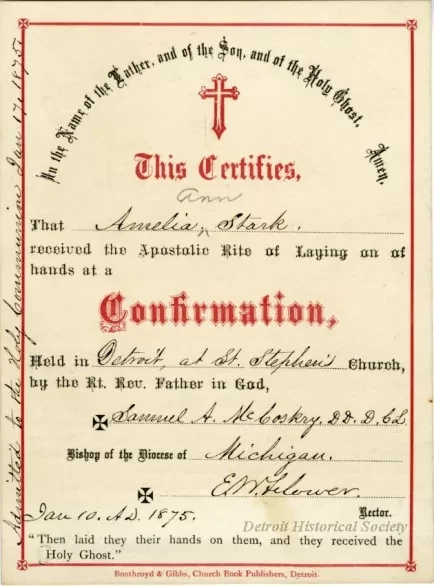 In the Name of the Father, and of the Son, and of the Holy Ghost, Amen.
This Certifies,
Ann
That Amelia ‸ Stark.
received the Apostolic Rite of Laying on of
hands at a
Confirmation,
Held in Detroit, at St. Stephen's Church,
by the Rt. Rev. Father in God,
Samuel A. McCoskry, D.D. D.C.L
Bishop of the Diocese of Michigan.
E. W. Flower.
Jan 10. A.D. 1875. Rector.
"Then laid they their hands on them, and they received the
Holy Ghost."
Boothroyd & Gibbs, Church Book Publishers, Detroit.
Admitted to the Holy Communion Jan 17, 1875.
Detroit Historical Society